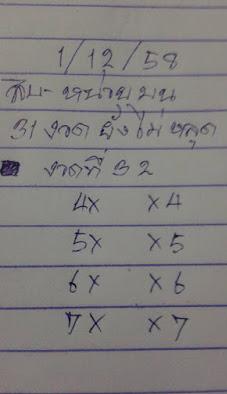 1/12/58
สิบ-หน่วยบน
31 งวด ยังไม่หลุด
งวดที่ 32
4x x4
5x x5
6x x6
7x x7